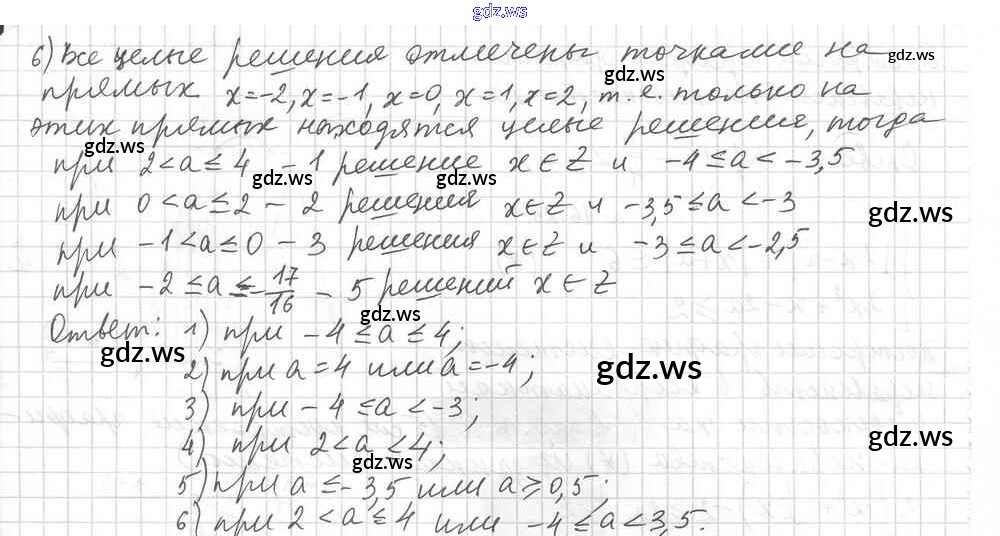 gdz.ws
6) Все целые решения отмечены точками на gdz.ws
прямых x=-2, x=-1, x=0, x=1, x=2, т.е. только на gdz.ws
этих прямых находятся целые решение, тогда
при 2<a≤4 - 1 решение x∈Z и -4≤a<-3,5
gdz.ws gdz.ws gdz.ws
при 0<a≤2 - 2 решения x∈Z и -3,5≤a<-3
gdz.ws
при -1<a≤0 - 3 решения x∈Z и -3≤a<-2,5
при -2≤a≤-17/16 - 5 решений x∈Z
gdz.ws
Ответ: 1) при -4≤a≤4;
gdz.ws
2) при a=4 или a=-4;
gdz.ws
3) при -4≤a<-3;
4) при 2<a<4;
gdz.ws
gdz.ws
5) при a≤-3,5 или a≥0,5;
6) при 2<a≤4 или -4≤a<3,5.
gdz.ws gdz.ws